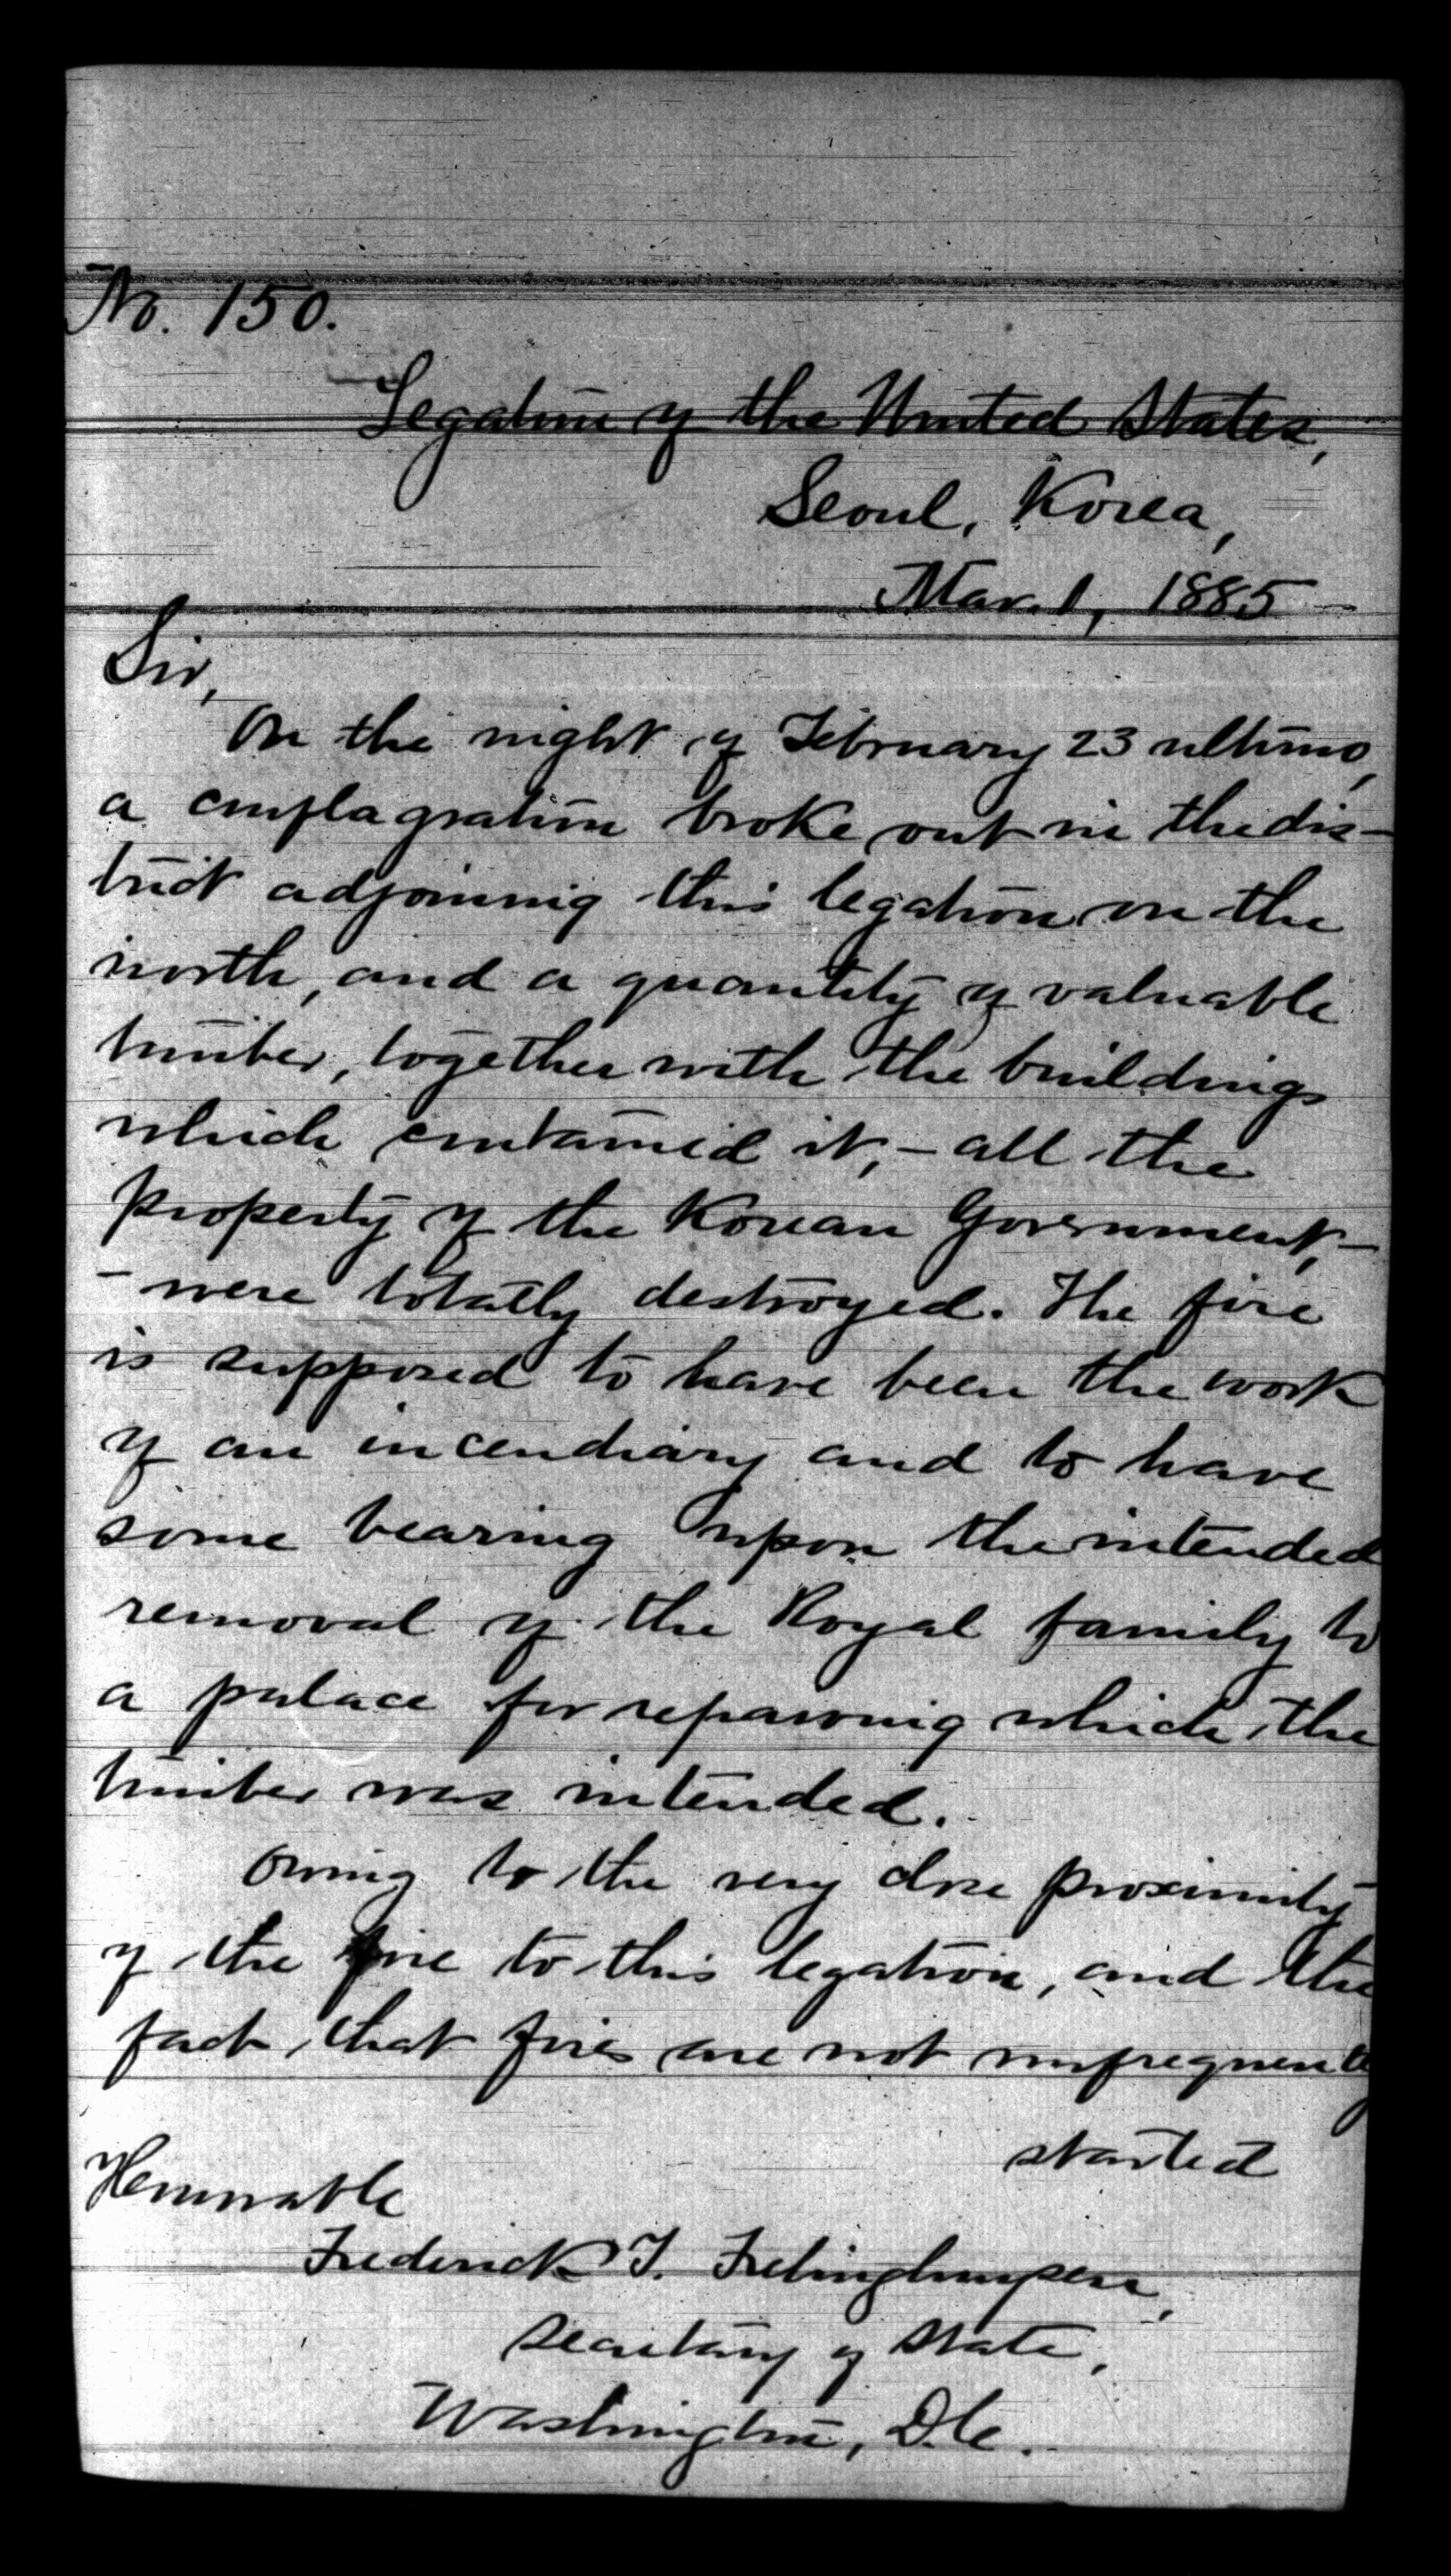 No. 150.
Legation of the United States,
Seoul, Korea,
Mar. 1, 1885
Sir,
On the night of February 23 ultimo,
a conflagration broke out in the dis-
trict adjoining this legation on the
north, and a quantity of valuable
timber, together with the buildings
which contained it, - all the
property of the Korean Government, -
- were totally destroyed. The fire
is supposed to have been the work
of an incendiary and to have
some bearing upon the intended
removal of the Royal family to
a palace for repairing which the
timber was intended.
Owing to the very close proximity
of the fire to this legation, and the
fact that fires are not unfrequently
started
Honorable
Frederick T. Frelinghuysen,
Secretary of State,
Washington, D.C.